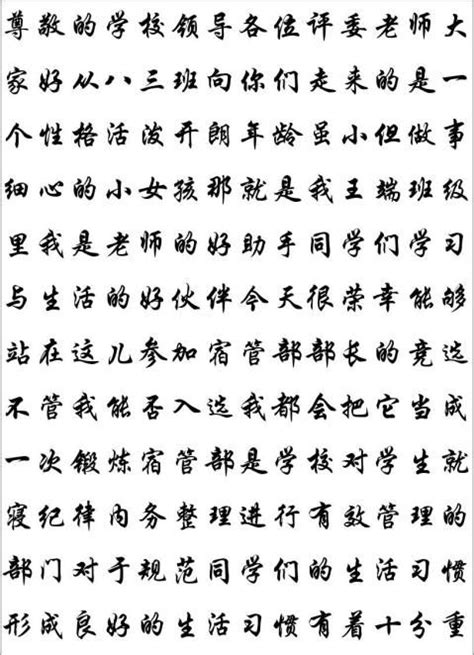 尊敬的学校领导各位评委老师大
家好从八三班向你们走来的是一
个性格活泼开朗年龄虽小但做事
细心的小女孩那就是我王端班级
里我是老师的好助手同学们学习
与生活的好伙伴今天很荣幸能够
站在这儿参加宿管部部长的竞选
不管我能否入选我都会把它当成
一次锻炼宿管部是学校对学生就
寝纪律内务整理进行有效管理的
部门对于规范同学们的生活习惯
形成良好的生活习惯有着十分重